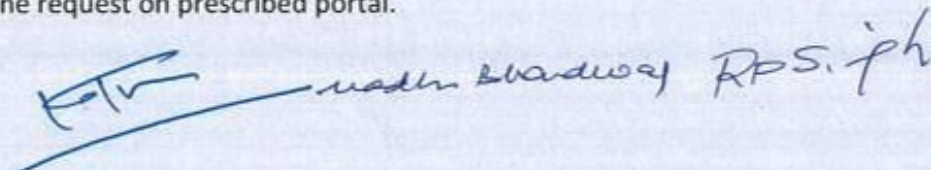 he request on prescribed portal.
Madhu Bhardwaj RPSingh